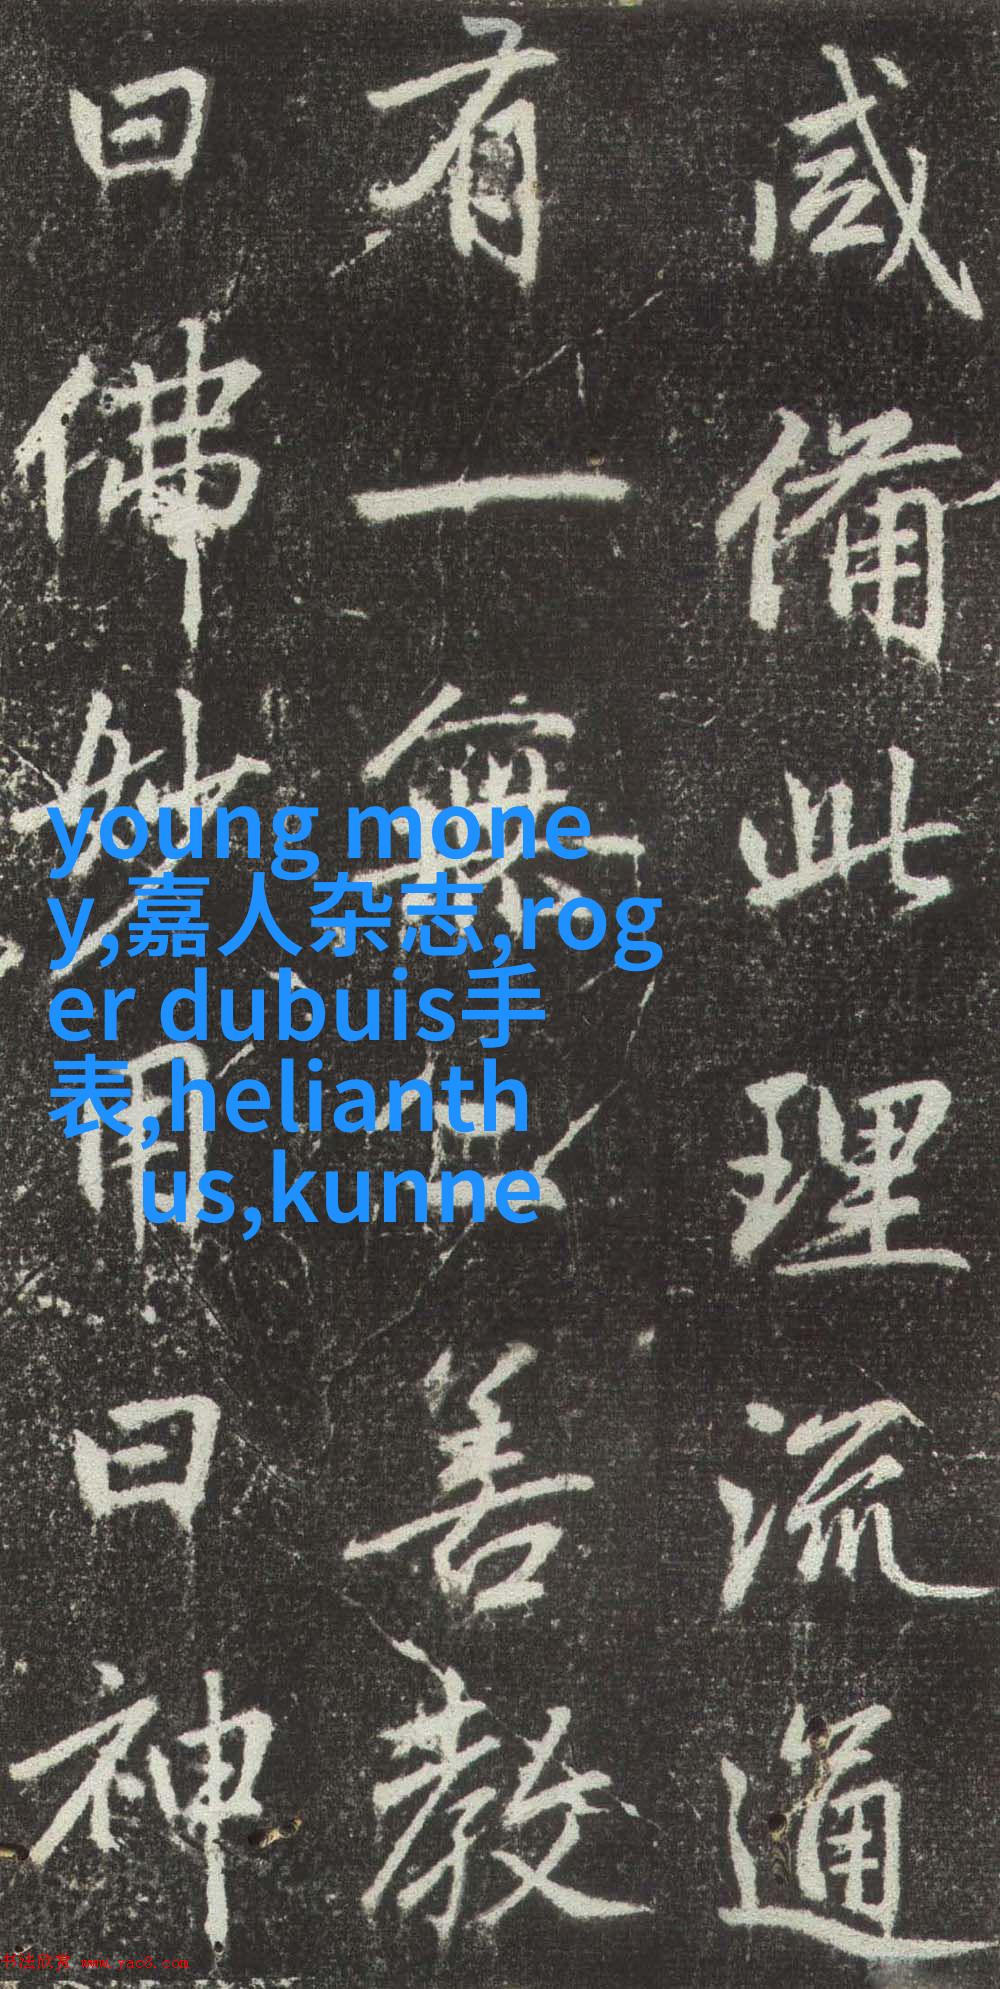 咸備此理流通
有一無二善教
曰佛妙用曰神
young mone
y,嘉人杂志,rog
er dubuis手
表,helianth
us,kunne
书法欣赏 www.yac8.com